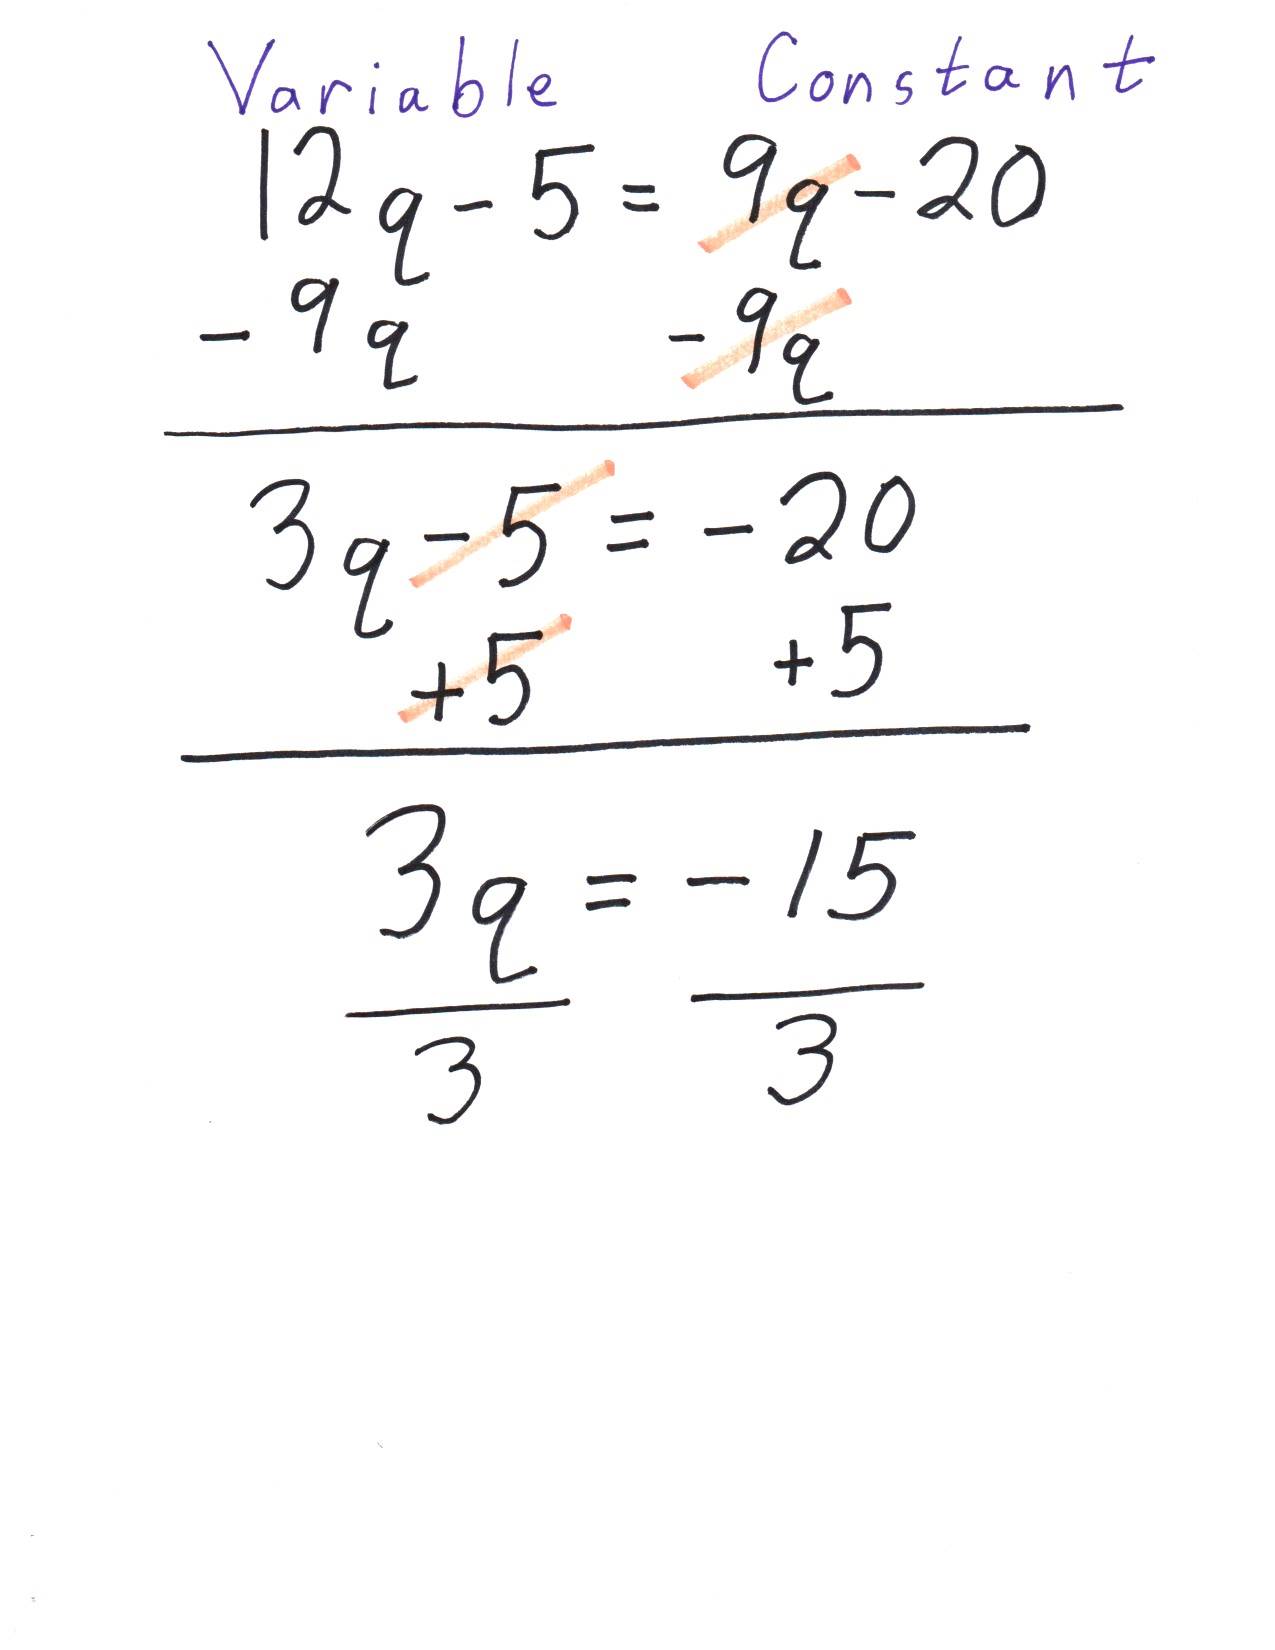 Variable Constant
12q - 5 = 9q - 20
- 9q - 9q
3q - 5 = - 20
+ 5 + 5
3q = - 15
3 3